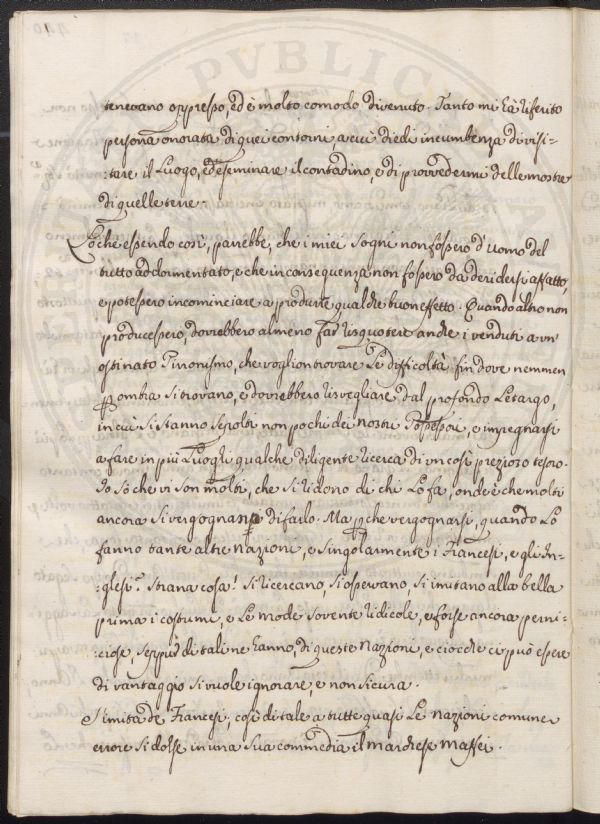 tenevano oppresso, ed è molto comodo divenuto. Tanto mi hà riferito
persona onorata di quei contorni a cui diedi incumbenza di visi=
:tare il Luogo, ed eseminare il contadino, e di provvedermi delle mostre
di quelle terre.
Loche essendo così, parebbe, che i miei sogni non fossero d'uomo del
tutto addormentato, e che in consequenza non fossero da deridersi affatto,
e potessero incominciare a produrre qualche buon effetto. Quando altro non
producessero, dovrebbero almeno far risquotere anche i venduti a un'
ostinato Pirronismo, che voglion trovare Le difficoltà fin dove nemmen
p ombra si trovano, e dovrebbero risvegliare dal profondo Letargo,
in cui si stanno sepolti non pochi dei nostri Possessori, e impegnarsi
a fare in più Luoghi qualche diligente ricerca di un così prezioso tesoro.
Io sò che vi son molti, che si ridono di chi Lo fa, onde è che molti
ancora si vergognano di farlo. Ma pche vergognarsi, quando Lo
fanno tante altre nazioni, e singolarmente i Francesi, e gli In=
:glesi? Strana cosa! Si ricercano, si osservano, si imitano alla bella
prima i costumi, e Le mode sovente ridicole, e forse ancora perni=
:ciose, seppur di tali ne hanno, di queste nazioni, e ciocche ci può essere
di vantaggio si vuole ignorare e non si cura.
Si imita de Francesi, così di tale a tutte quasi Le nazioni comune
errore si dolse in una sua commedia il Marchese Maffei.